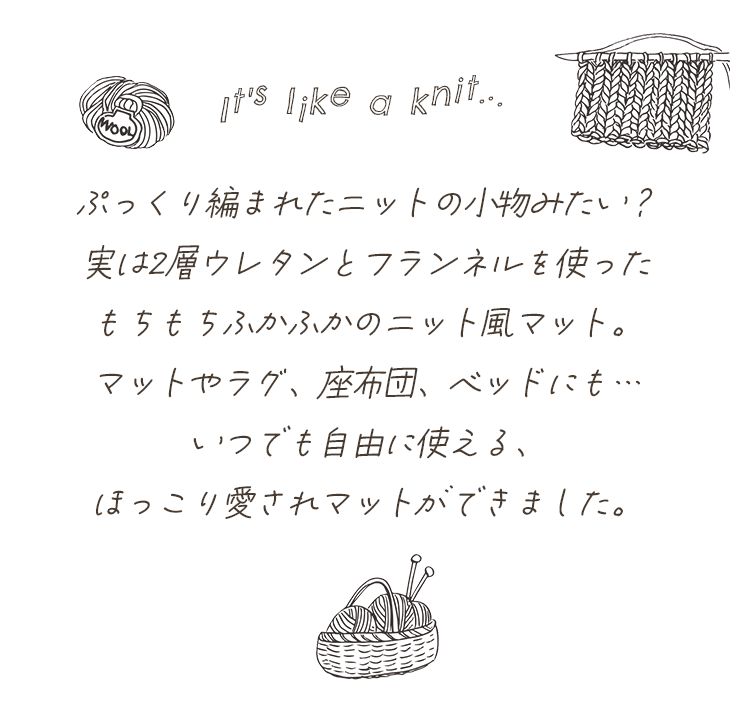 It's like a knit...
WOOL
ぷっくり編まれたニットの小物みたい?
実は2層ウレタンとフランネルを使った
もちもちふかふかのニット風マット。
マットやラグ、座布団、ベッドにも…
いつでも自由に使える、
ほっこり愛されマットができました。